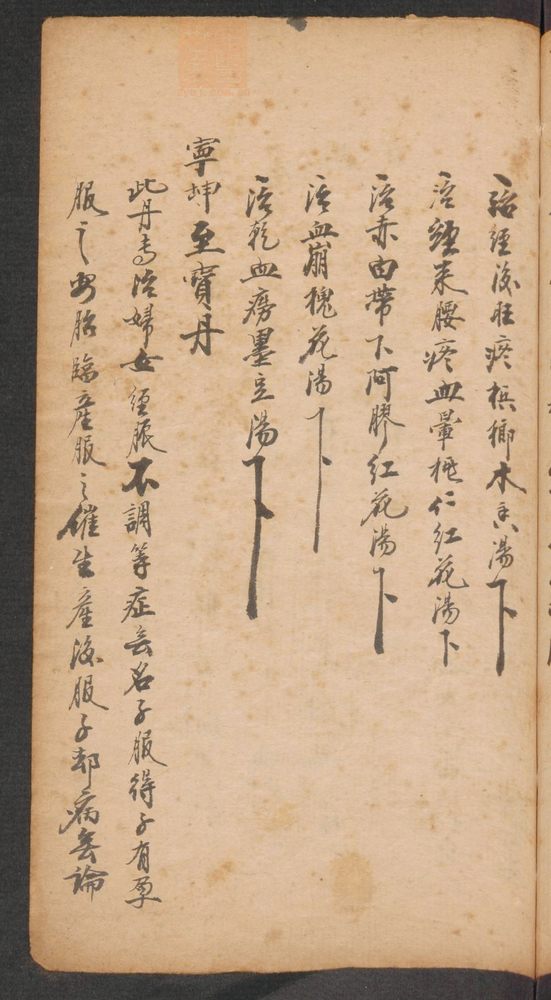 一治經後肚疼梹榔木香湯下
一治經來腰疼血暈桃仁紅花湯下
一治赤白帶下阿膠紅花湯下
一治血崩槐花湯下
一治乾血癆墨豆湯下
寧坤至寶丹
此丹專治婦女經脈不調等症無名子服得子有孕
服之安胎臨產服之催生產後服子却病無論